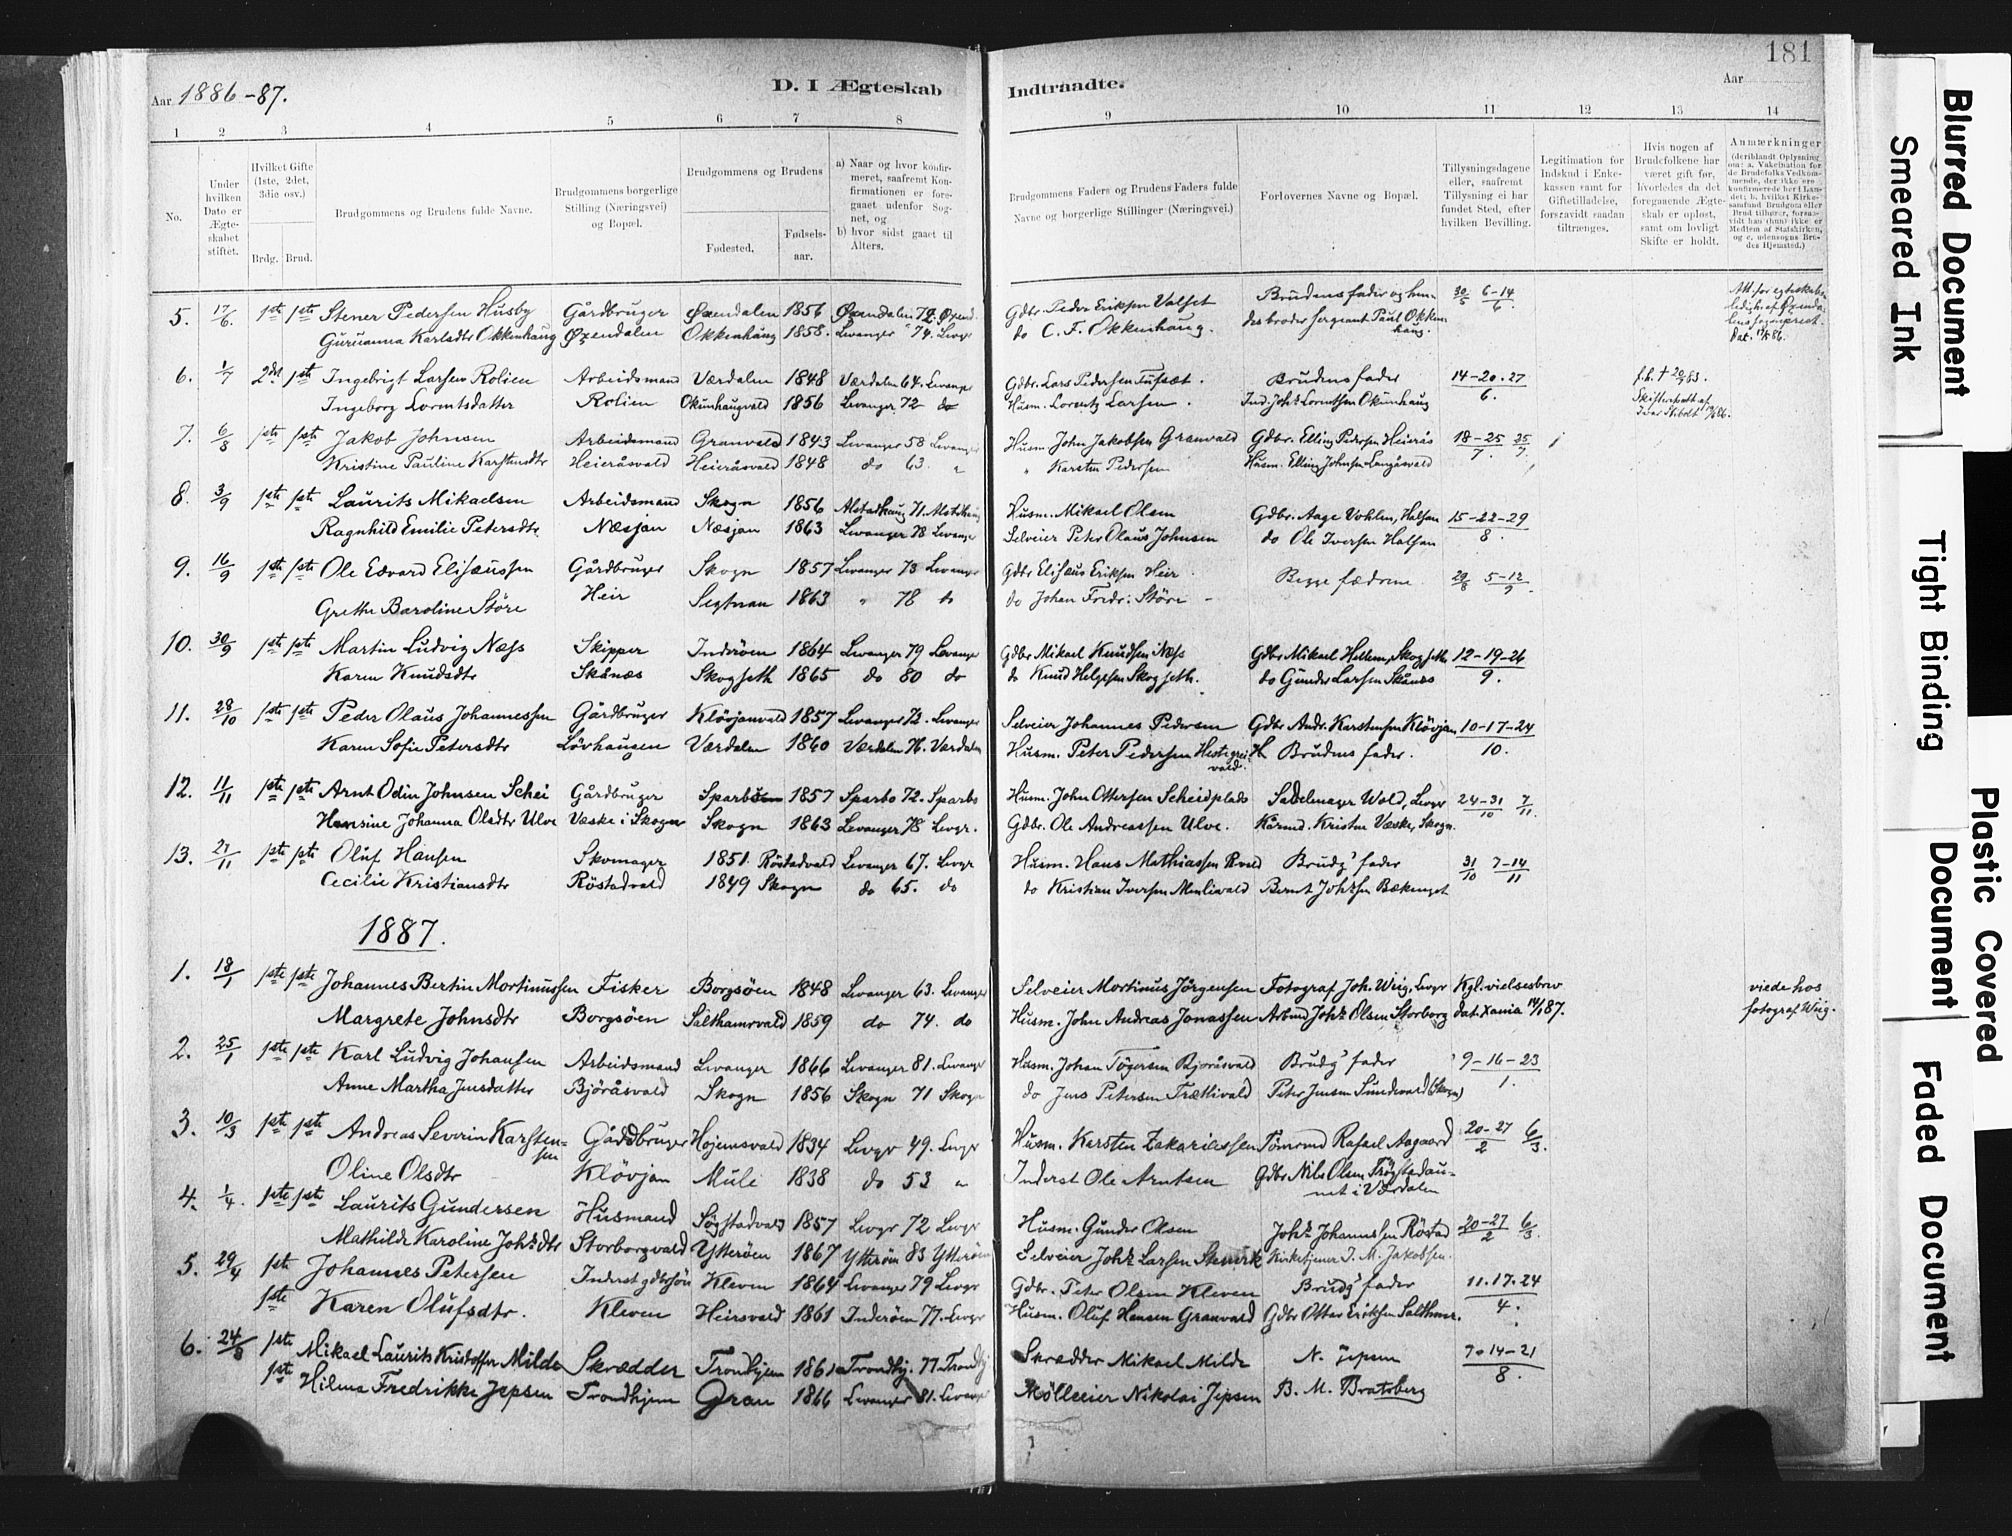 181
Aar 1886-87. D. I Ægteskab Indtraadte. Aar
1 2 3 4 5 6 7 8 9 10 11 12 13 14
No.
Under hvilken Dato er Ægteskabet stiftet.
Hvilket Gifte (1ste, 2det, 3die osv.)
Brdg. Brud.
Brudgommens og Brudens fulde Navne.
Brudgommens borgerlige Stilling (Næringsvei) og Bopæl.
Brudgommens og Brudens
Fødested. Fødsels-aar.
a) Naar og hvor konfirmeret, saafremt Konfirmationen er foregaaet udenfor Sognet, og
b) hvor sidst gaaet til Alters.
Brudgommens Faders og Brudens Faders fulde Navne og borgerlige Stillinger (Næringsvei.)
Forlovernes Navne og Bopæl.
Tillysningsdagene eller, saafremt Tillysning ei har fundet Sted, efter hvilken Bevilling.
Legitimation for Indskud i Enkekassen samt for Giftetilladelse, forsaavidt saadan tiltrænges.
Hvis nogen af Brudefolkene har været gift før, hvorledes da det foregaaende Ægteskab er opløst, samt om lovligt Skifte er holdt.
Anmærkninger
5. 17/6. 1ste 1ste Stener Pedersen Husby Gårdbruger Øxendalen 1856 Øxendalen 72. Øxend. Gdbr. Peder Eriksen Valset Brudens fader og hen- 30/5 6-14/6
Guruanna Karlsdtr Okkenhaug Øxendalen Okkenhaug 1858. Levanger 74. Levgr do C. F. Okkenhaug. des broder sergeant Paul Okkenhaug.
6. 1/7 2det 1ste Ingebrigt Larsen Rolien Arbeidsmand Værdalen 1848 Værdalen 64. Levanger Gdbr. Lars Pedersen Tufsæt. Brudens fader 14-20-27/6.
Ingeborg Lorentsdatter Rolien Okünhaugvald 1856 Levanger 72 do Husm. Lorentz Larsen. Ind. Johs Lorntsen Okünhaug
7. 6/8 1ste 1ste Jakob Johnsen Arbeidsmand Granvald 1843 Levanger 58 Levanger Husm. John Jakobsen Granvald Gdbr. Elling Pedersen Heierås 18-25/7. 25/7.
Kristine Pauline Karstensdtr Heieråsvald Heieråsvald 1848 do 63. " " Karsten Pedersen Husm. Elling Johnsen Langåsvald
8. 3/9 1ste 1ste Laurits Mikaelsen Arbeidsmand Skogn 1856 Alstadhaug 71. Alstadhaug Husm. Mikael Olsen Gdbr. Aage Vohlen, Halsan 15-22-29/8.
Ragnhild Emilie Petersdtr. Næsjan Næsjan 1863 Levanger 78 Levanger Selveier Peter Olaus Johnsen do Ole Iversen Halsan
9. 16/9 1ste 1ste Ole Edvard Elisæussen Gårdbruger Skogn 1857 Levanger 73 Levanger Gdbr Elisæus Eriksen Heir Begge fædrene 29/8 5-12/9.
Grethe Baroline Störe Heir Segtnan 1863 " 78 do do Johan Fredr: Störe
10. 30/9 1ste 1ste Martin Ludvig Næss Skipper Inderöen 1864 Levanger 79 Levanger Gdbr Mikael Knudsen Næss Gdbr Mikael Hellem, Skogseth 12-19-26/9.
Karen Knudsdtr Skånæs Skogseth 1865 do 80 do do Knud Helgesen Skogseth. do Gunder Larsen Skånæs
11. 28/10 1ste 1ste Peder Olaus Johannessen Gårdbruger Klövjanvald 1857 Levanger 72. Levanger Selveier Johannes Pedersen Gdbr Andr. Karstensen Klövjan 10-17-24/10.
Karen Sofie Petersdtr Lövhaugen Værdalen 1860 Værdalen 76. Værdalen Husm. Peter Pedersen Hestegreivald. Brudens fader.
12. 11/11 1ste 1ste Arnt Odin Johnsen Schei Gårdbruger Sparbo 1857 Sparbo 72. Sparbo Husm. John Ottersen Scheidplads Sadelmager Wold, Levgr 24-31/10 7/11.
Hansine Johanna Olsdtr Ulve Væske i Skogn Skogn 1863 Levanger 78 Levgr. Gdbr. Ole Andreassen Ulve. Kårmd. Kristen Væske, Skogn.
13. 21/11 1ste 1ste Oluf Hansen Skomager 1851. Röstadvald Levanger 67. Levgr Husm. Hans Mathiassen Rvald Brudgs fader 31/10 7-14/11
Cecilie Kristiansdtr Röstadvald 1849 Skogn do 65. do do Kristian Iversen Menlivald Bernt Johssen Bækenget
1887.
1. 18/1 1ste 1ste Johannes Bertin Mortinussen Fisker Borgsöen 1848 Levanger 63. Levanger Selveier Mortinus Jörgensen Fotograf Joh. Wiig, Levgr Kgl. vielsesbrev viede hos
Margrete Johnsdtr Borgsöen Salthamrvald 1859 do 74. do Husm. John Andreas Jonassen Arbmd Johs Olsen Storborg dat. Xania 14/1 87. fotograf Wiig.
2. 25/1 1ste 1ste Karl Ludvig Johansen Arbeidsmand Levanger 1866 Levanger 81. Levanger Husm. Johan Tögersen Björåsvald Brudgs fader 9-16-23/1.
Anne Martha Jensdatter Björåsvald Skogn 1856 Skogn 71 Skogn do Jens Petersen Trætlivald Peter Jensen Sundevald (Skogn)
3. 10/3 1ste 1ste Andreas Severin Karstensen Gårdbruger Hojemsvald 1834 Levgr 49. Levgr Husm. Karsten Zakariassen Tömrmd Rafael Aagaard 20-27/2 6/3.
Oline Olsdtr Klövjan Mule 1838 do 53 " Inderst Ole Arntsen Gdbr Nils Olsen Trögstadaunet i Værdalen
4. 1/4. 1ste 1ste Laurits Gundersen Husmand Søgstadvald 1857 Levgr 72 Levgr Husm. Gunder Olsen Johs Johannssen Röstad 20-27/2 6/3.
Mathilde Karoline Johsdtr Storborgvald Ytteröen 1867 Ytteröen 83 Ytteröen Selveier Johs Larsen Kirketjener J. M. Jakobsen.
5. 29/4 1ste Johannes Petersen Inderst gdbrsön Kleven 1864 Levanger 79 Levgr Gdbr. Peter Olsen Kleven Brudgs fader 11.17.24/4.
1ste Karen Olufsdtr. Kleven Heirsvald 1861 Inderöen 77. Levgr Husm. Oluf Hansen Granvald Gdbr Ottar Eriksen Salthmr.
6. 24/8 1ste Mikael Laurits Kristoffer Milde Skrædder Trondhjem 1861 Trondhj. 77 Trondhj Skrædder Mikael Milde N. Jepsen 7-14-21/8.
1ste Hilma Fredrikke Jepsen Trondhjem Gran 1866 Levanger 81. Levanger Mölleeier Nikolai Jepsen B. M. Bratsberg
Blurred Document
Smeared Ink
Tight Binding
Plastic Covered Document
Faded Document